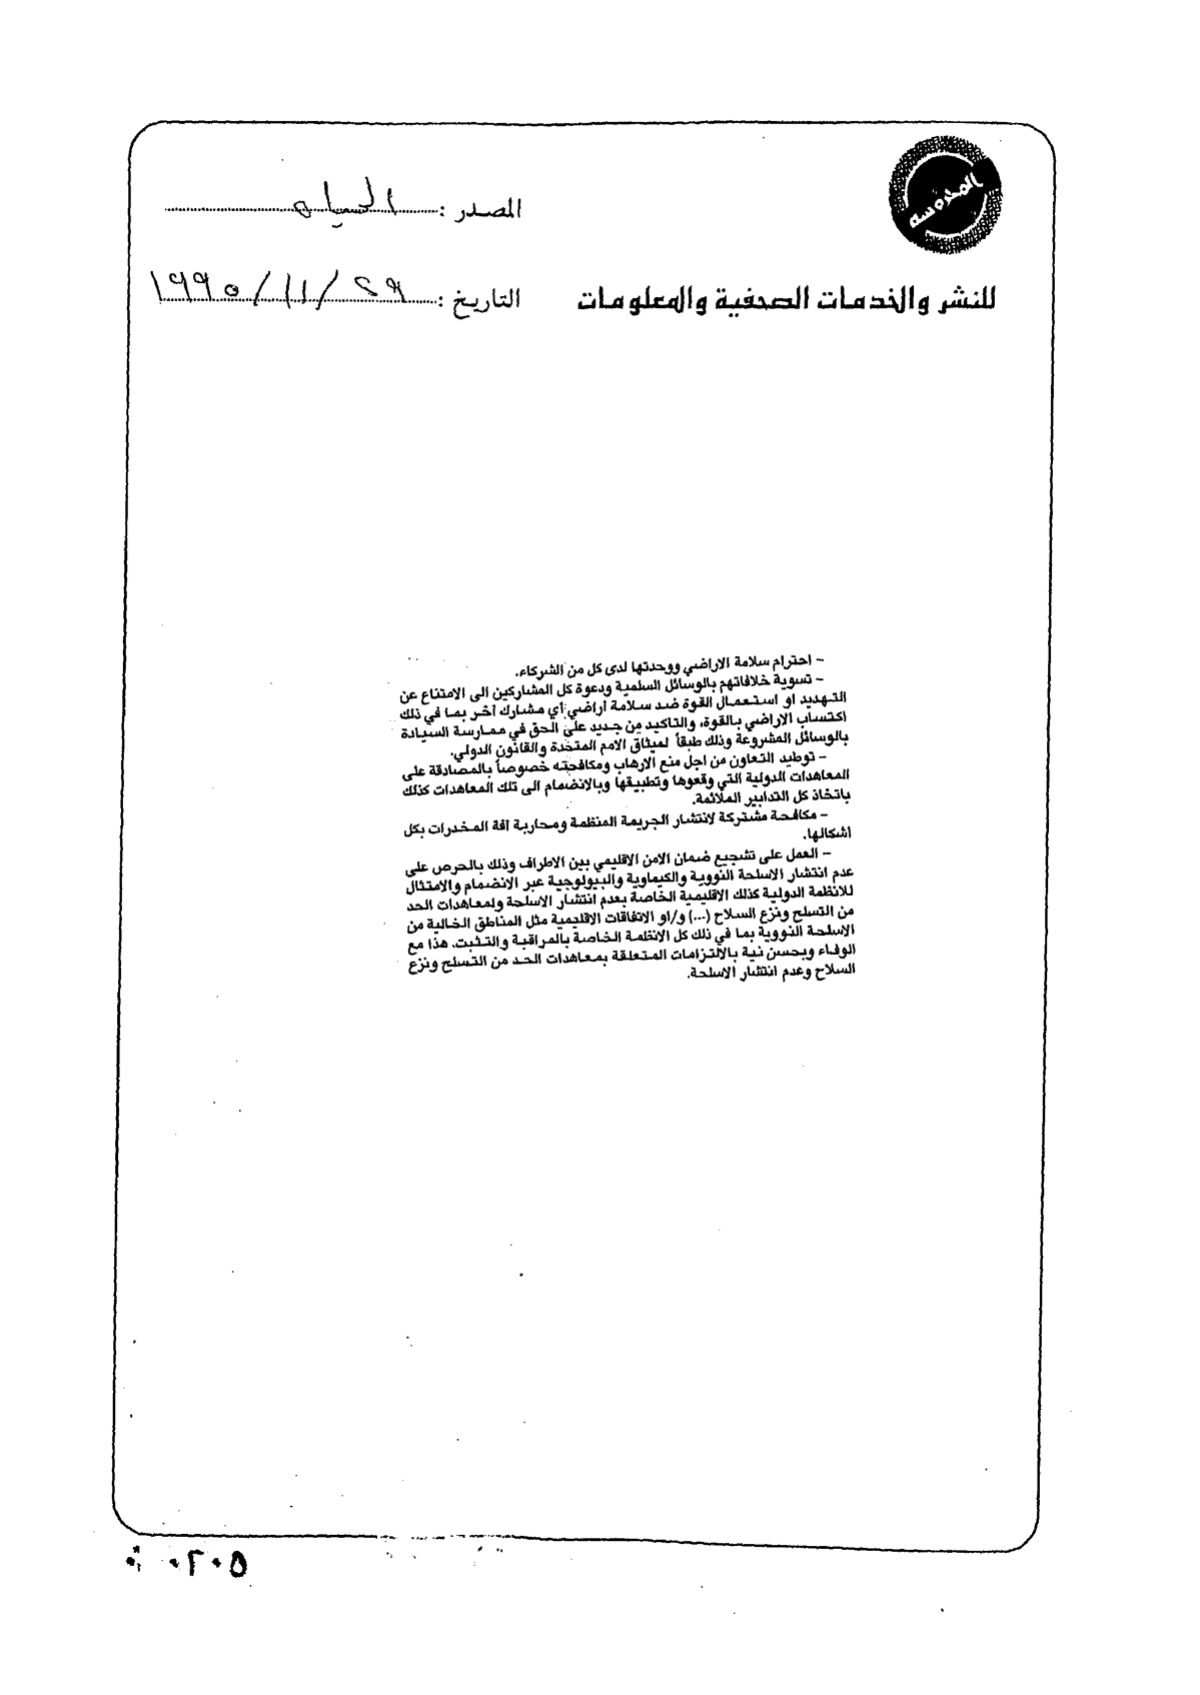 المحروسة
المصدر : الحياه
للنشر والخدمات الصحفية والمعلومات
التاريخ : ٢٩ / ١١ / ١٩٩٥
– احترام سلامة الاراضي ووحدتها لدى كل من الشركاء.
– تسوية خلافاتهم بالوسائل السلمية ودعوة كل المشاركين الى الامتناع عن
التهديد او استعمال القوة ضد سلامة أراضي أي مشارك آخر بما في ذلك
اكتساب الاراضي بالقوة، والتاكيد من جديد على الحق في ممارسة السيادة
بالوسائل المشروعة وذلك طبقاً لميثاق الامم المتحدة والقانون الدولي.
– توطيد التعاون من اجل منع الارهاب ومكافحته خصوصاً بالمصادقة على
المعاهدات الدولية التي وقعوها وتطبيقها وبالانضمام الى تلك المعاهدات كذلك
باتخاذ كل التدابير الملائمة.
– مكافحة مشتركة لانتشار الجريمة المنظمة ومحاربة آفة المخدرات بكل
اشكالها.
– العمل على تشجيع ضمان الامن الاقليمي بين الاطراف وذلك بالحرص على
عدم انتشار الاسلحة النووية والكيماوية والبيولوجية عبر الانضمام والامتثال
للانظمة الدولية كذلك الاقليمية الخاصة بعدم انتشار الاسلحة ولمعاهدات الحد
من التسلح ونزع السلاح (...) و/او الاتفاقات الاقليمية مثل المناطق الخالية من
الاسلحة النووية بما في ذلك كل الانظمة الخاصة بالمراقبة والتثبت. هذا مع
الوفاء وبحسن نية بالالتزامات المتعلقة بمعاهدات الحد من التسلح ونزع
السلاح وعدم انتشار الاسلحة.
٠٢٠٥